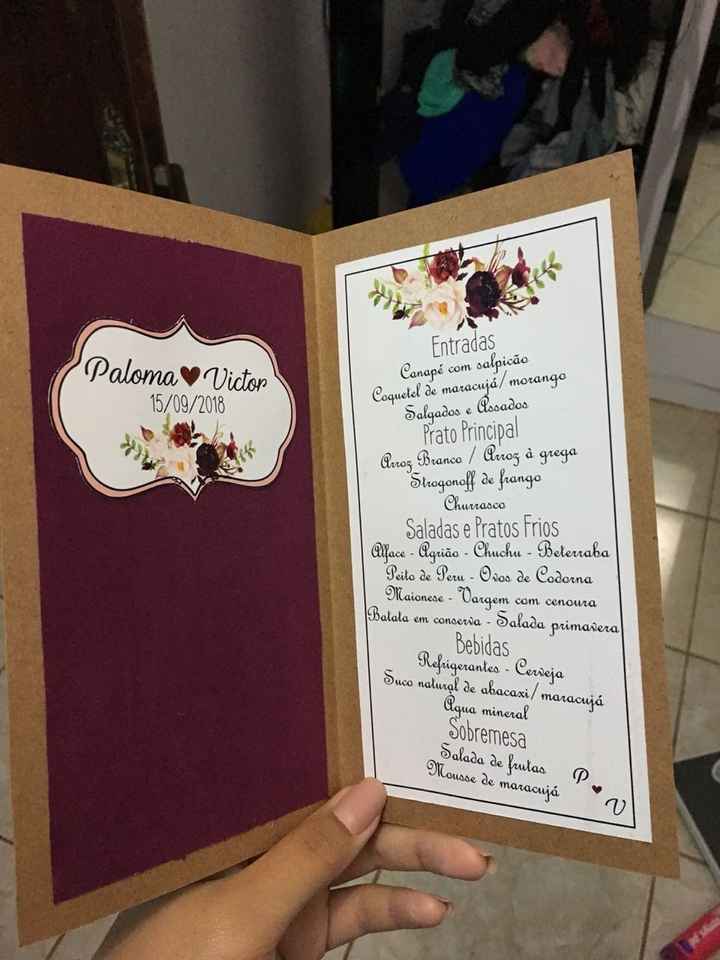 Paloma Victor
15/09/2018
Entradas
Canapé com salpicão
Coquetel de maracujá/morango
Salgados e Assados
Prato Principal
Arroz Branco / Arroz à grega
Strogonoff de frango
Churrasco
Saladas e Pratos Frios
Alface - Agrião - Chuchu - Beterraba
Peito de Peru - Ovos de Codorna
Maionese - Vargem com cenoura
Batata em conserva - Salada primavera
Bebidas
Refrigerantes - Cerveja
Suco natural de abacaxi/maracujá
Água mineral
Sobremesa
Salada de frutas
Mousse de maracujá
P
V